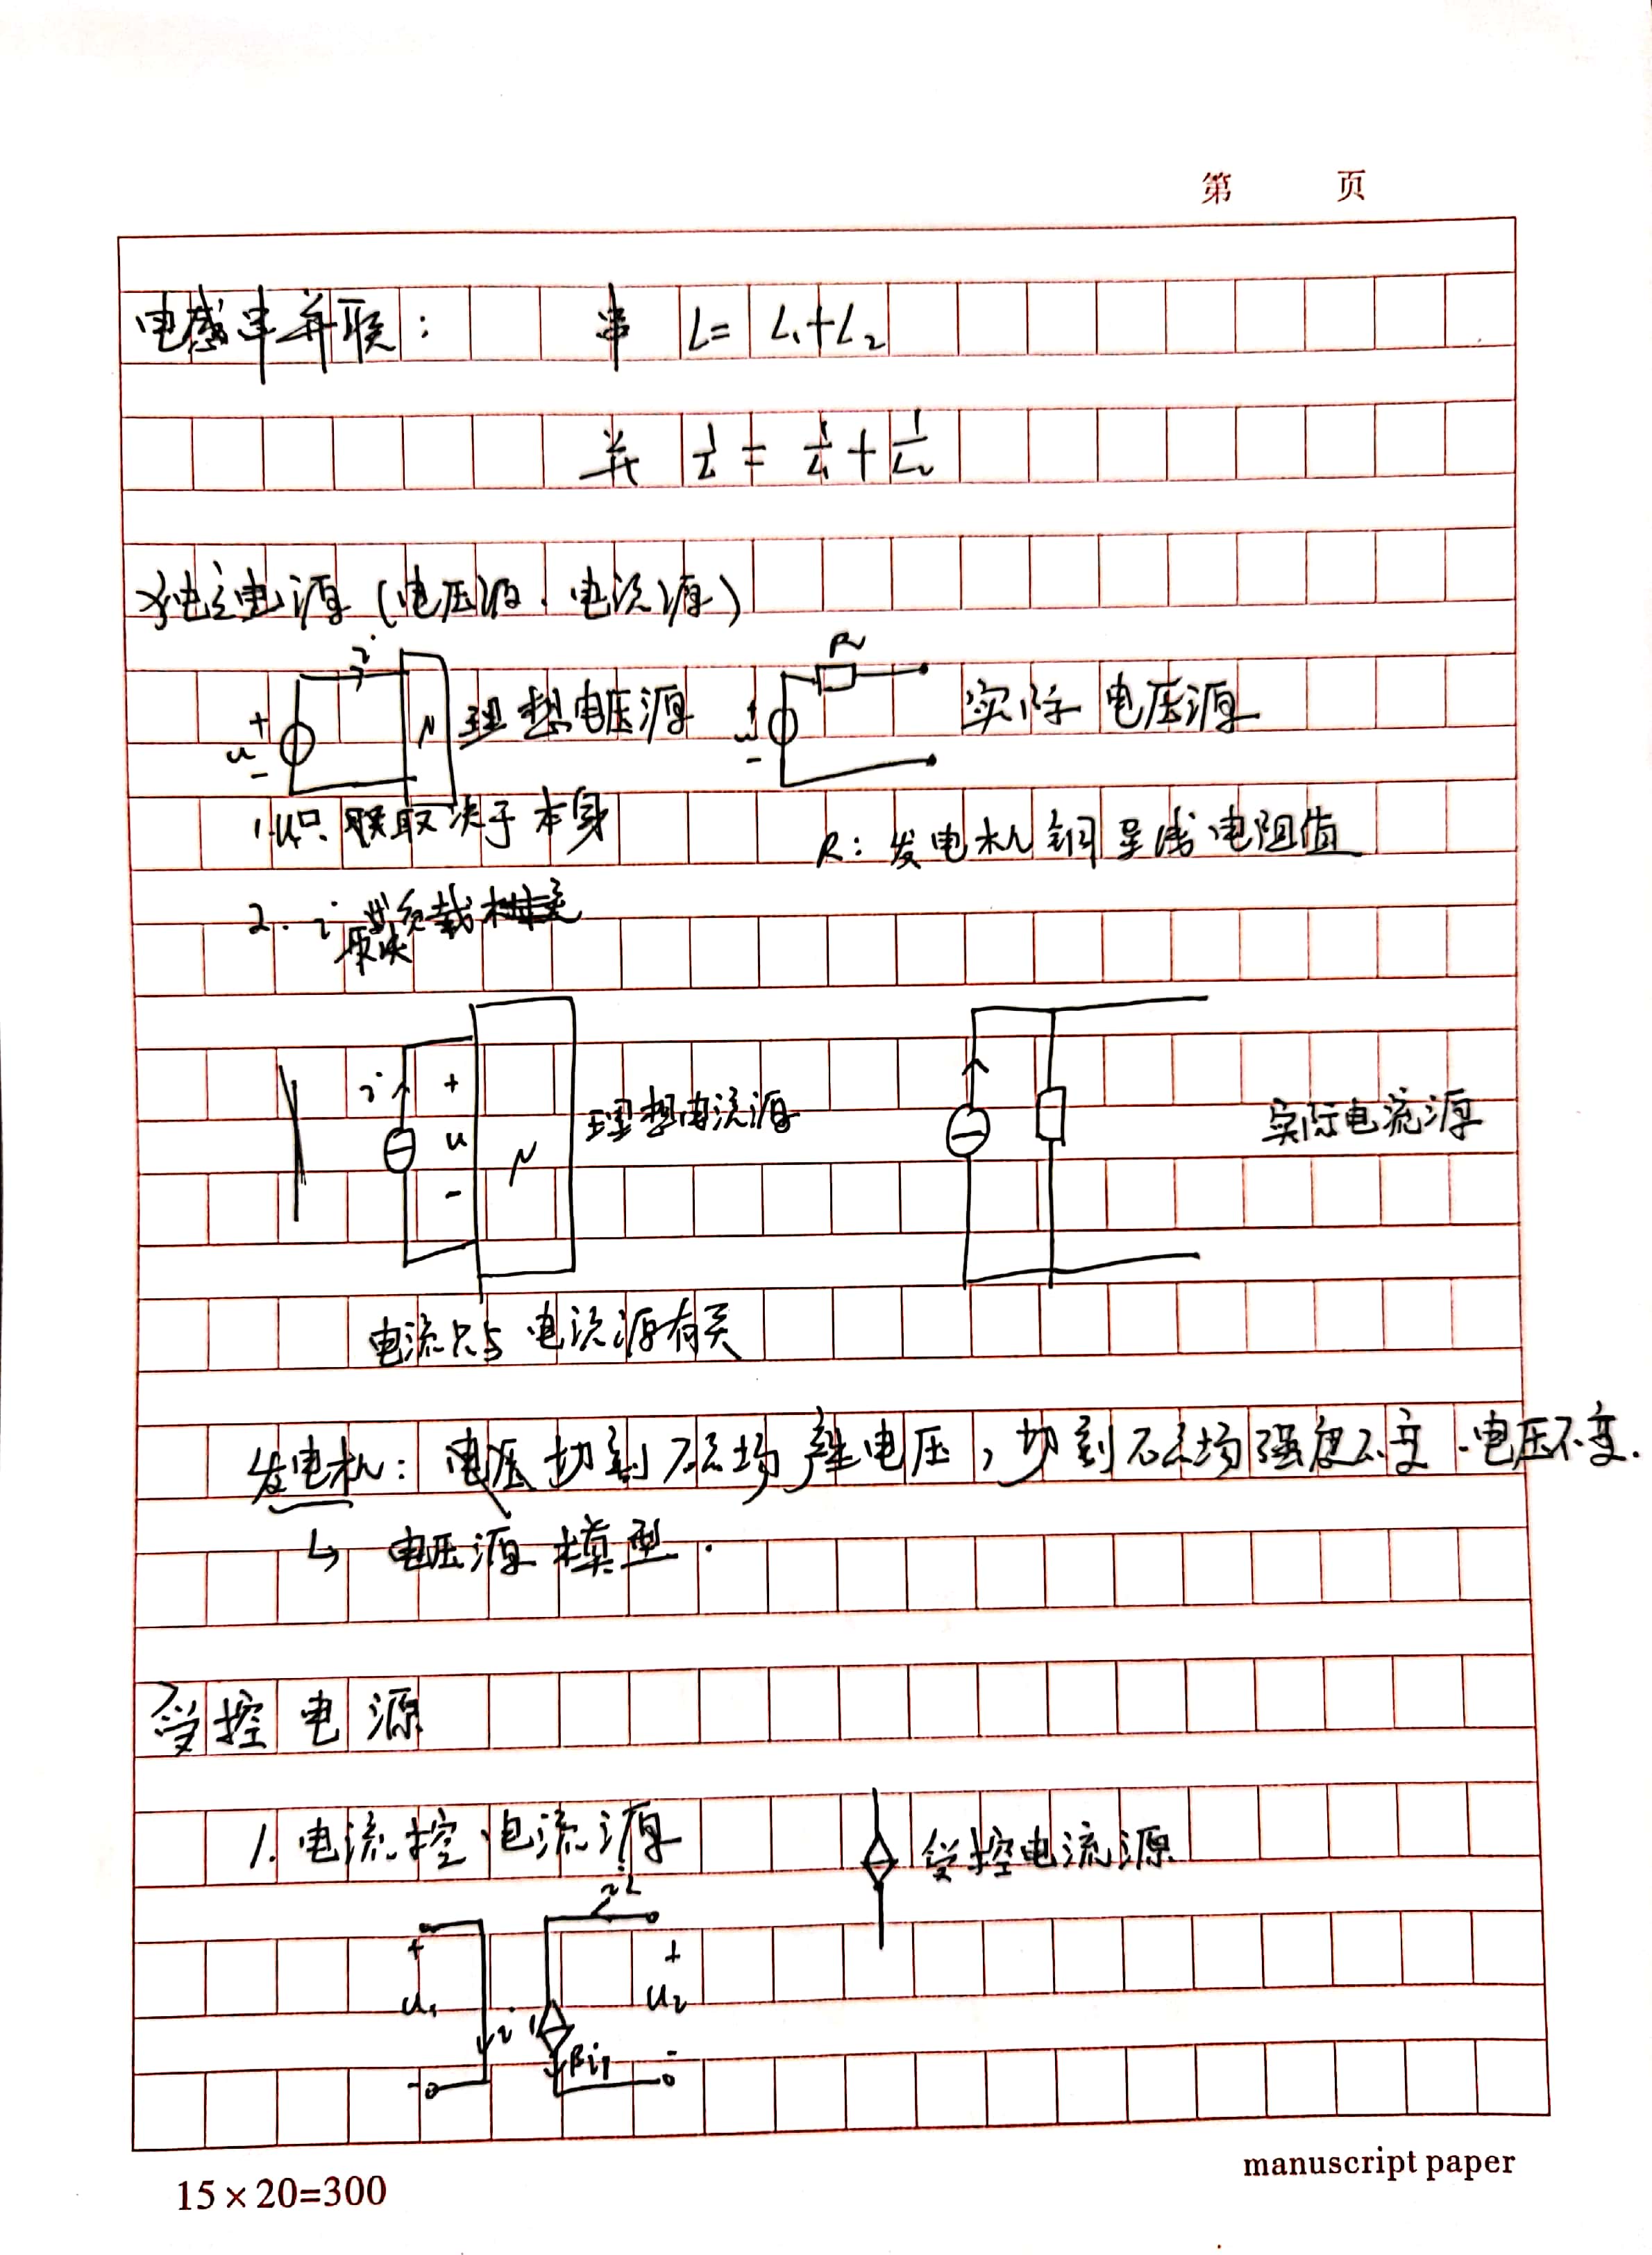 第 页
电感串并联： 串 L= L₁+L₂
并 1/L = 1/L₁ + 1/L₂
独立电源（电压源、电流源）
i R
+ u - N 理想电压源 u - 实际 电压源
1. u只 取决于本身
R：发电机铜导线电阻值
2. i 负载
取决
i + u - N 理想电流源 实际电流源
电流只与 电流源有关
发电机： 切割磁场产生电压，切割磁场强度不变.电压不变.
↳ 电压源模型.
受控电源
1. 电流控电流源 受控电流源
+ u₁ - i βi₁ + u₂ -
manuscript paper
15×20=300